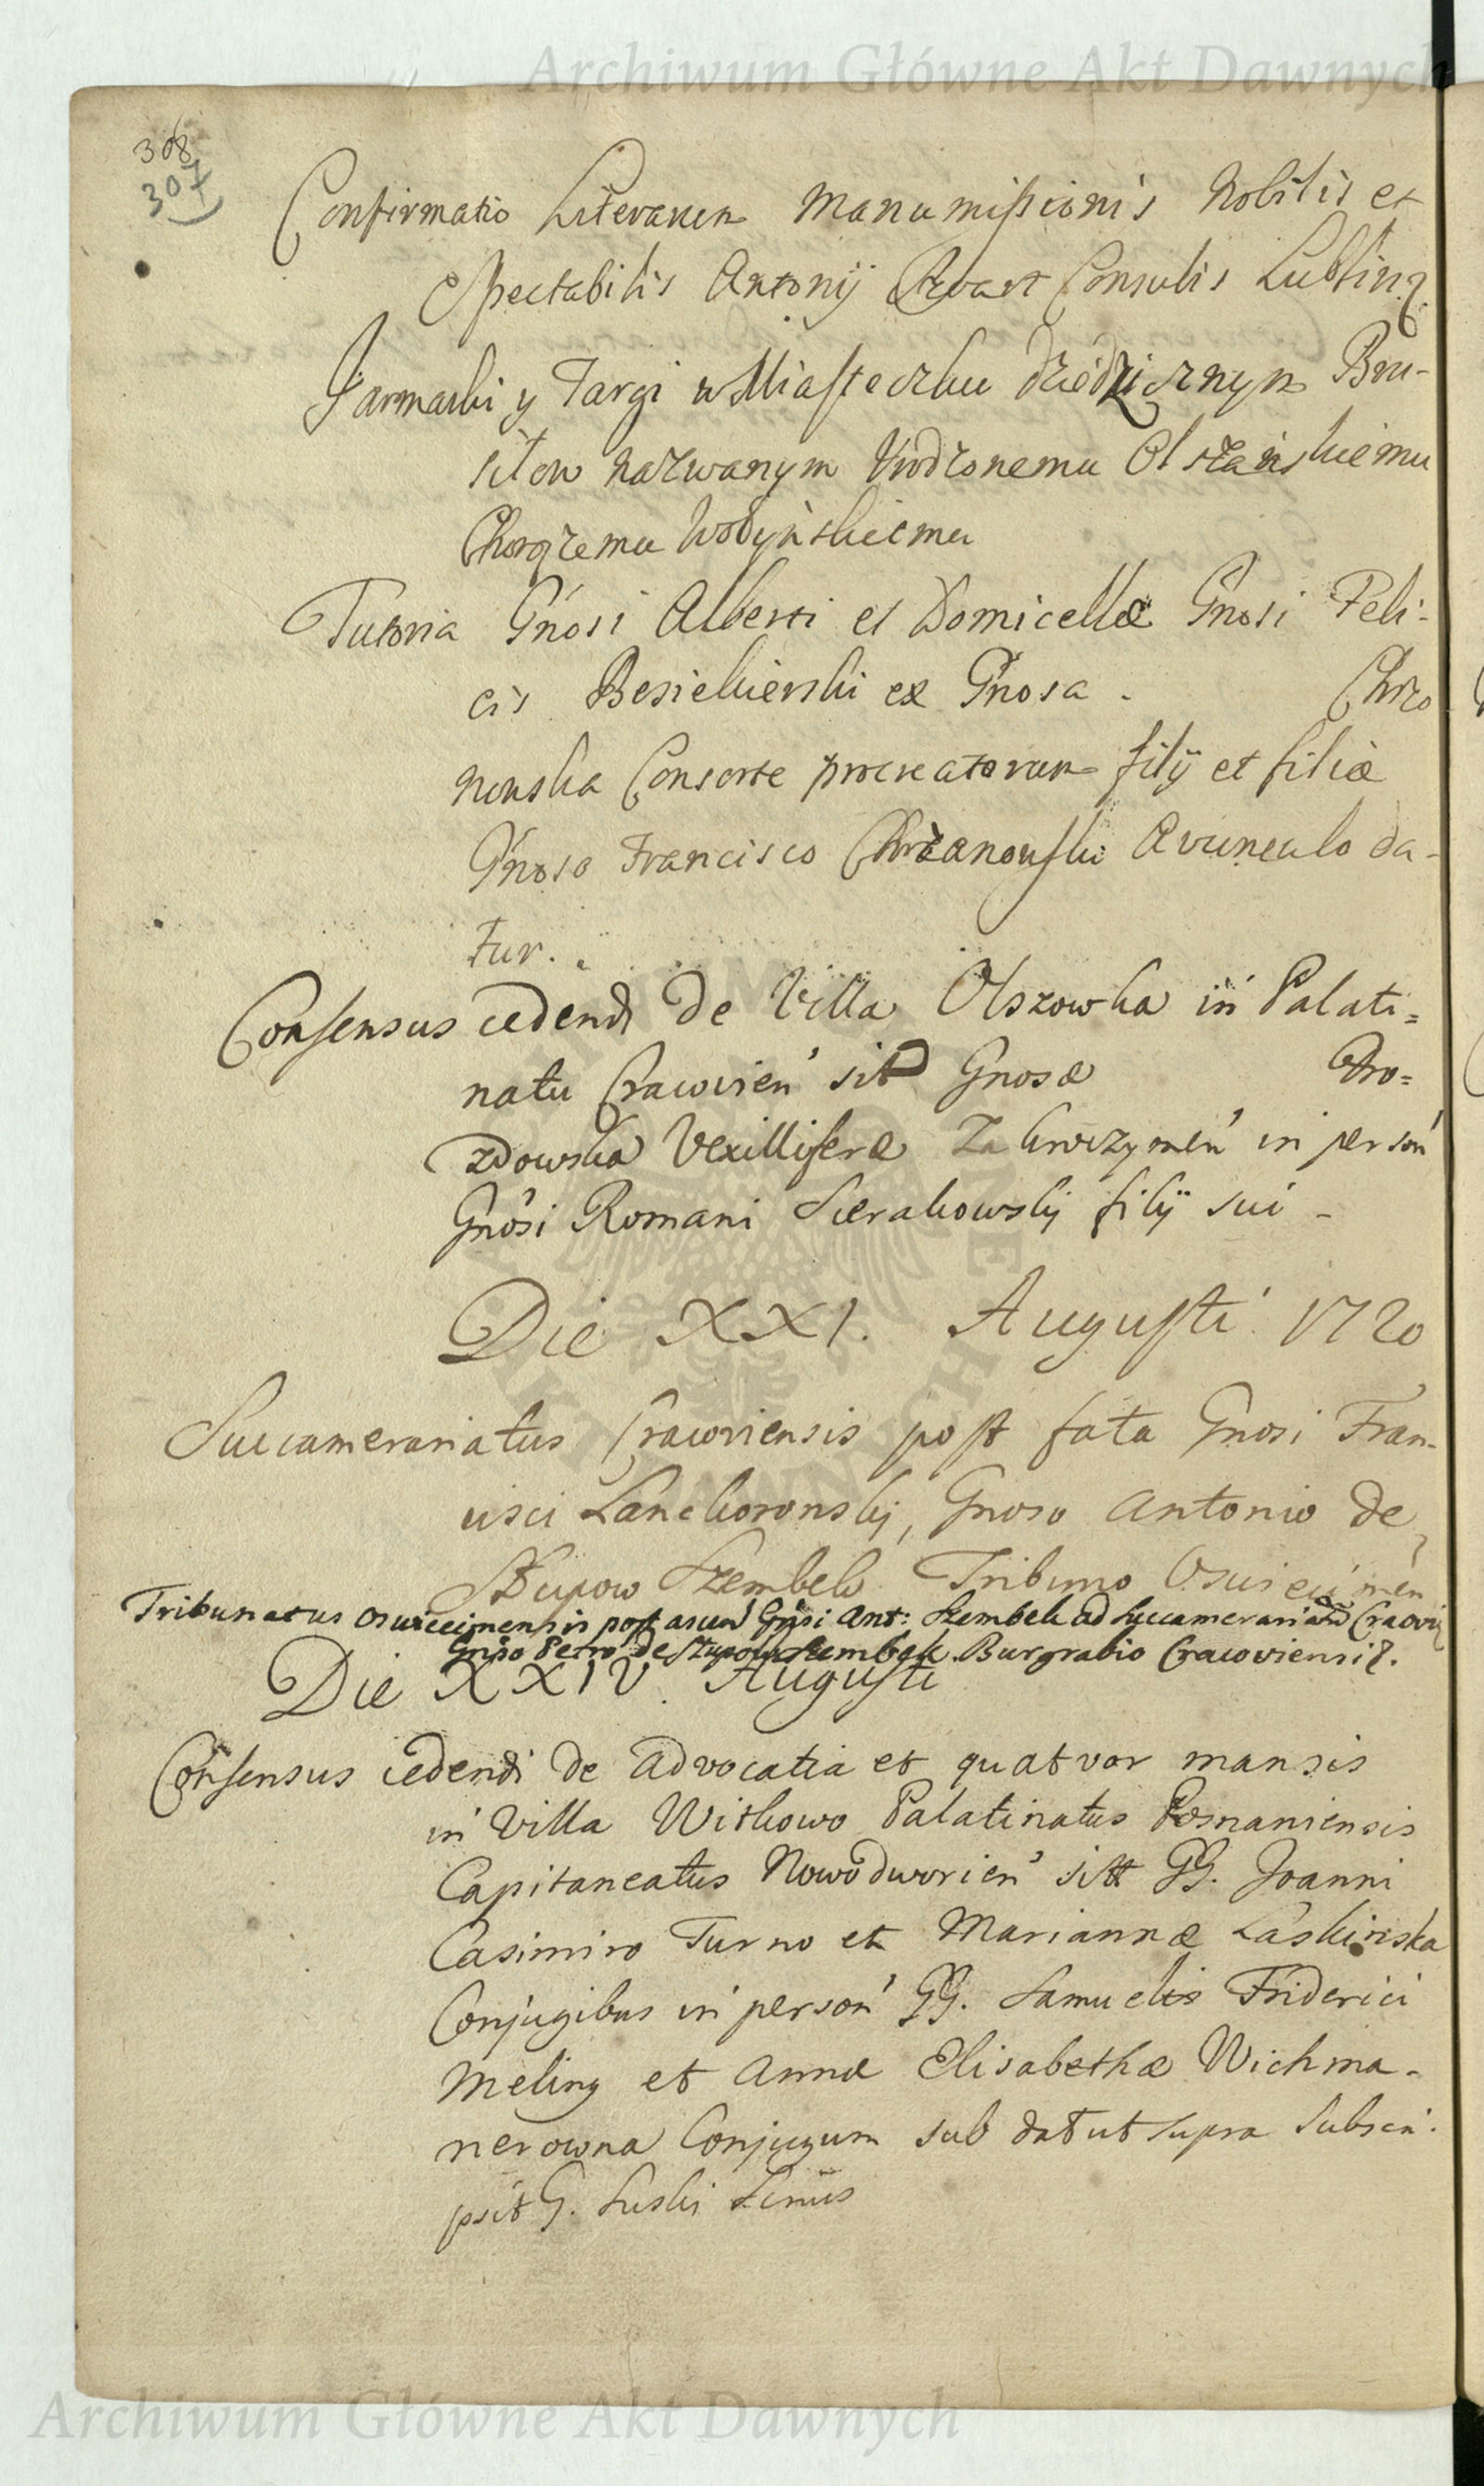 Archiwum Główne Akt Dawnych
308
307
Confirmatio Literarum Manumissionis Nobilis et
Spectabilis Antonij Consulis Lublin
Jarmarki y Targi w Miasteczku dziedzicznym Bru-
siłow nazwanym Urodzonemu Olszanskiemu
Chorążemu Wołyńskiemu
Tutoria Gnosi Alberti et Domicellæ Gnosi Feli-
cis Besiekierski ex Gnosa - Chrzo
nowska Consorte procreatorum filij et filiæ
Gnoso Francisco Chrzanowski Avunculo da-
tur.
Consensus cedendi de Villa Olszowka in Palati=
natu Cracovien' sit Gnosæ Dro=
zdowska Vexilliferæ Zakroczymen' in person'
Gnosi Romani Sierakowskij filij sui -
Die XXI. Augusti 1720
Succamerariatus Cracoviensis post fata Gnosi Fran-
cisci Lanckoronskij, Gnoso Antonio de
Słupow Szembek Tribuno Osviecimen
Tribunatus Osviecimensis post ascen' Gnsi Ant: Szembek ad Succamerariatu Cracovi
Gnso Petro de Słupow Szembek Burgrabio Cracoviensi.
Die XXIV. Augusti
Consensus cedendi de Advocatia et quatvor mansis
in Villa Witkowo Palatinatus Posnaniensis
Capitaneatus Nowodworien' sitt GG. Joanni
Casimiro Turno et Mariannæ Łaskinska
Conjugibus in person' GG. Samuelis Friderici
Meling et Annæ Elisabethæ Wichma-
nerowna Conjugum sub dat ut supra Subscri-
psit G. Suski
Archiwum Główne Akt Dawnych